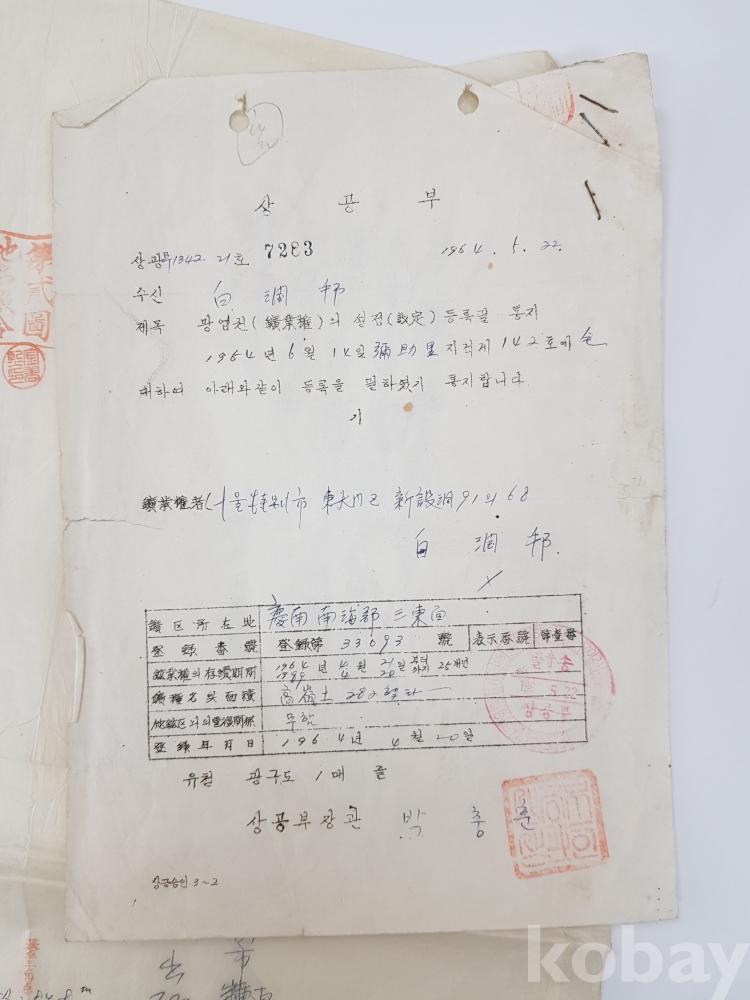 상 공 부
상광무1342. 21호 7283 1964. 5. 22.
수신 白 潤 邦
제목 광업권(鑛業權)의 설정(設定) 등록필 통지
1964년 6월 14일 彌助里 지적제 142호에
대하여 아래와 같이 등록을 필하였기 통지합니다.
기
鑛業權者 서울特別市 東大門区 新設洞 91의 68
白 潤 邦.
鑛区所在地 慶南 南海郡 三東面
登錄番號 登錄第 33093 號 表示番號 第壹番
鑛業權의 存續期間 1964年 4월 21일 부터 25개년
1989 4 20 까지
鑛種名및面積 高嶺土 282헥타
他鑛区와의重複関係 무함
登錄年月日 1964년 4월 20일
유첨 광구도 1매 끝
상공부장관 박 충 훈
상공승인 3-2
발송
5.22
상공부
第弐圖
kobay